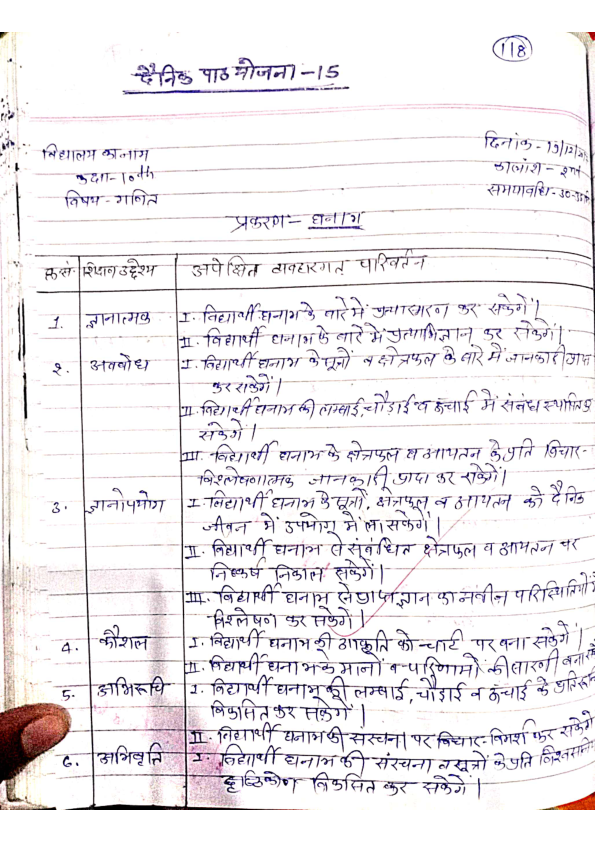 118
दैनिक पाठ योजना -15
विद्यालय का नाम
कक्षा - 10th
विषय - गणित
दिनांक - 19/12/
कालांश -
समयावधि - 30-35
प्रकरण - घनाभ
क्र.सं. शिक्षण उद्देश्य अपेक्षित व्यवहारगत परिवर्तन
1. ज्ञानात्मक I. विद्यार्थी घनाभ के बारे में प्रत्यास्मरण कर सकेंगे।
II. विद्यार्थी घनाभ के बारे में प्रत्याभिज्ञान कर सकेंगे।
२. अवबोध I. विद्यार्थी घनाभ के सूत्रों व क्षेत्रफल के बारे में जानकारी प्राप्त
कर सकेंगे।
II. विद्यार्थी घनाभ की लम्बाई, चौड़ाई व ऊंचाई में संबंध स्थापित कर
सकेंगे।
III. विद्यार्थी घनाभ के क्षेत्रफल व आयतन के प्रति विचार-
विश्लेषणात्मक जानकारी प्राप्त कर सकेंगे।
3. ज्ञानोपयोग I. विद्यार्थी घनाभ के सूत्रों, क्षेत्रफल व आयतन को दैनिक
जीवन में उपयोग में ला सकेंगे।
II. विद्यार्थी घनाभ से संबंधित क्षेत्रफल व आयतन पर
निष्कर्ष निकाल सकेंगे।
III. विद्यार्थी घनाभ से प्राप्त ज्ञान का नवीन परिस्थितियों में
विश्लेषण कर सकेंगे।
4. कौशल I. विद्यार्थी घनाभ की आकृति को चार्ट पर बना सकेंगे।
II. विद्यार्थी घनाभ के मानों व परिणामों की सारणी बना सकेंगे
5. अभिरूचि I. विद्यार्थी घनाभ की लम्बाई, चौड़ाई व ऊंचाई के प्रति रूचि
विकसित कर सकेंगे।
II. विद्यार्थी घनाभ की संरचना पर विचार-विमर्श कर सकेंगे
६. अभिवृति I. विद्यार्थी घनाभ की संरचना व सूत्रों के प्रति
दृष्टिकोण विकसित कर सकेंगे।